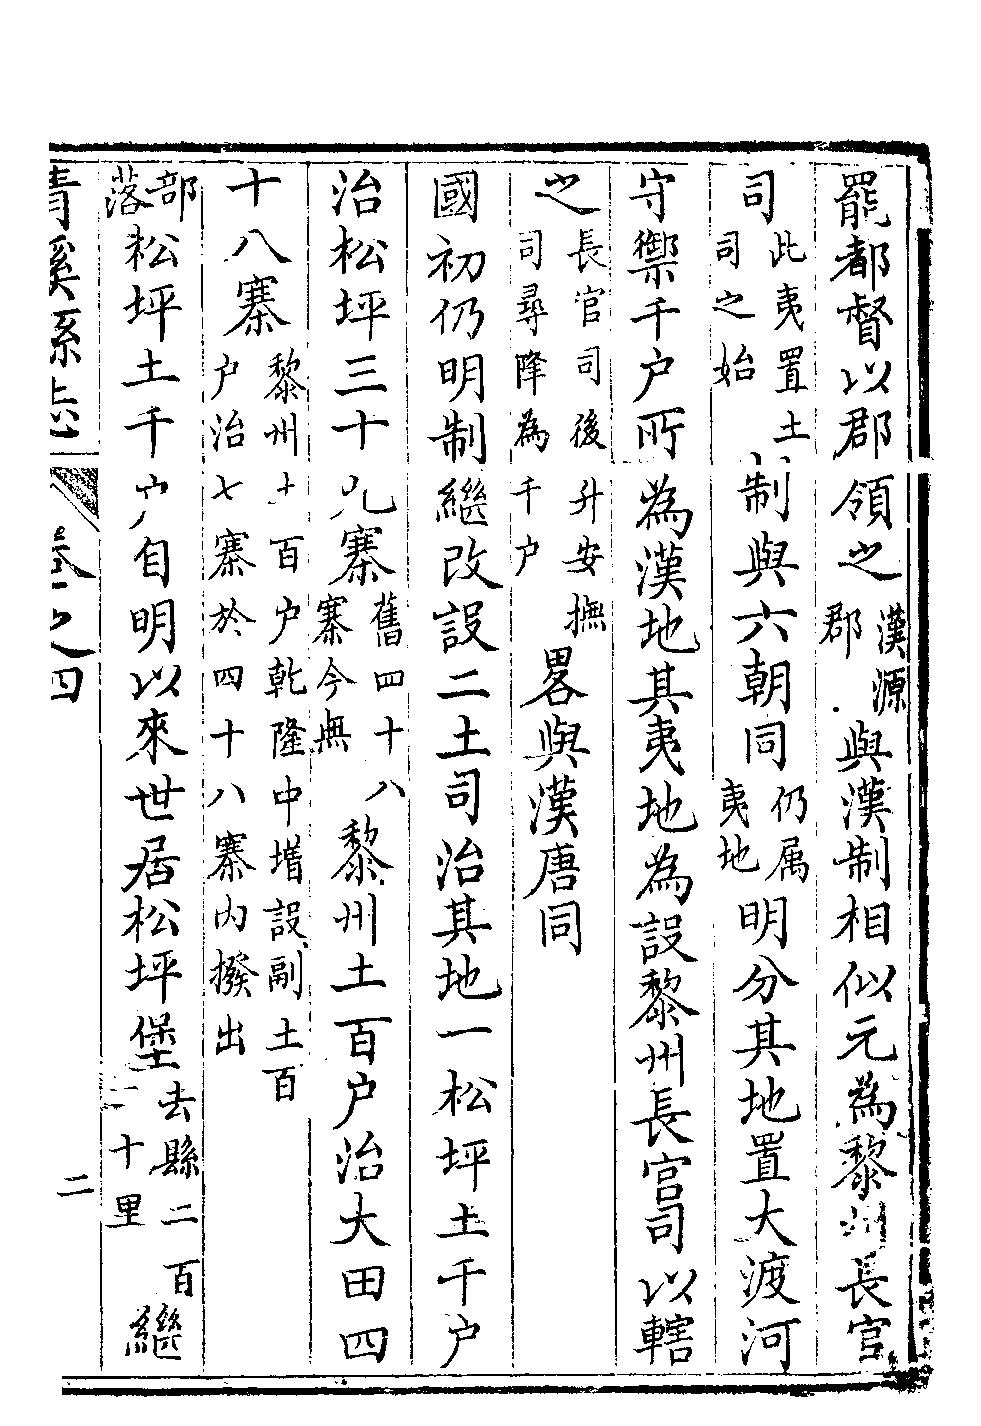 罷都督以郡領之漢源郡與漢制相似元為黎州長官
司此夷置土司之始制與六朝同仍属夷地明分其地置大渡河
守禦千户所為漢地其夷地為設黎州長官司以轄
之長官司後升安撫司尋降為千户畧與漢唐同
國初仍明制繼改設二土司治其地一松坪土千户
治松坪三十九寨舊四十八寨今無黎州土百户治大田四
十八寨黎州土百户乾隆中增設副土百户治七寨於四十八寨内撥出
部落松坪土千户自明以來世居松坪堡去縣二百二十里繼
青溪縣志 卷之四 二